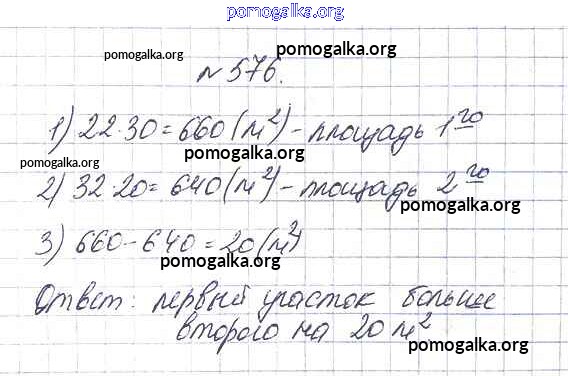 pomogalka.org
pomogalka.org
pomogalka.org
№576.
1) 22·30=660(м²)-площадь 1го
pomogalka.org
pomogalka.org
2) 32·20=640(м²)-площадь 2го
pomogalka.org
3) 660-640=20(м²)
pomogalka.org
Ответ: первый участок больше
pomogalka.org
второго на 20 м²
pomogalka.org